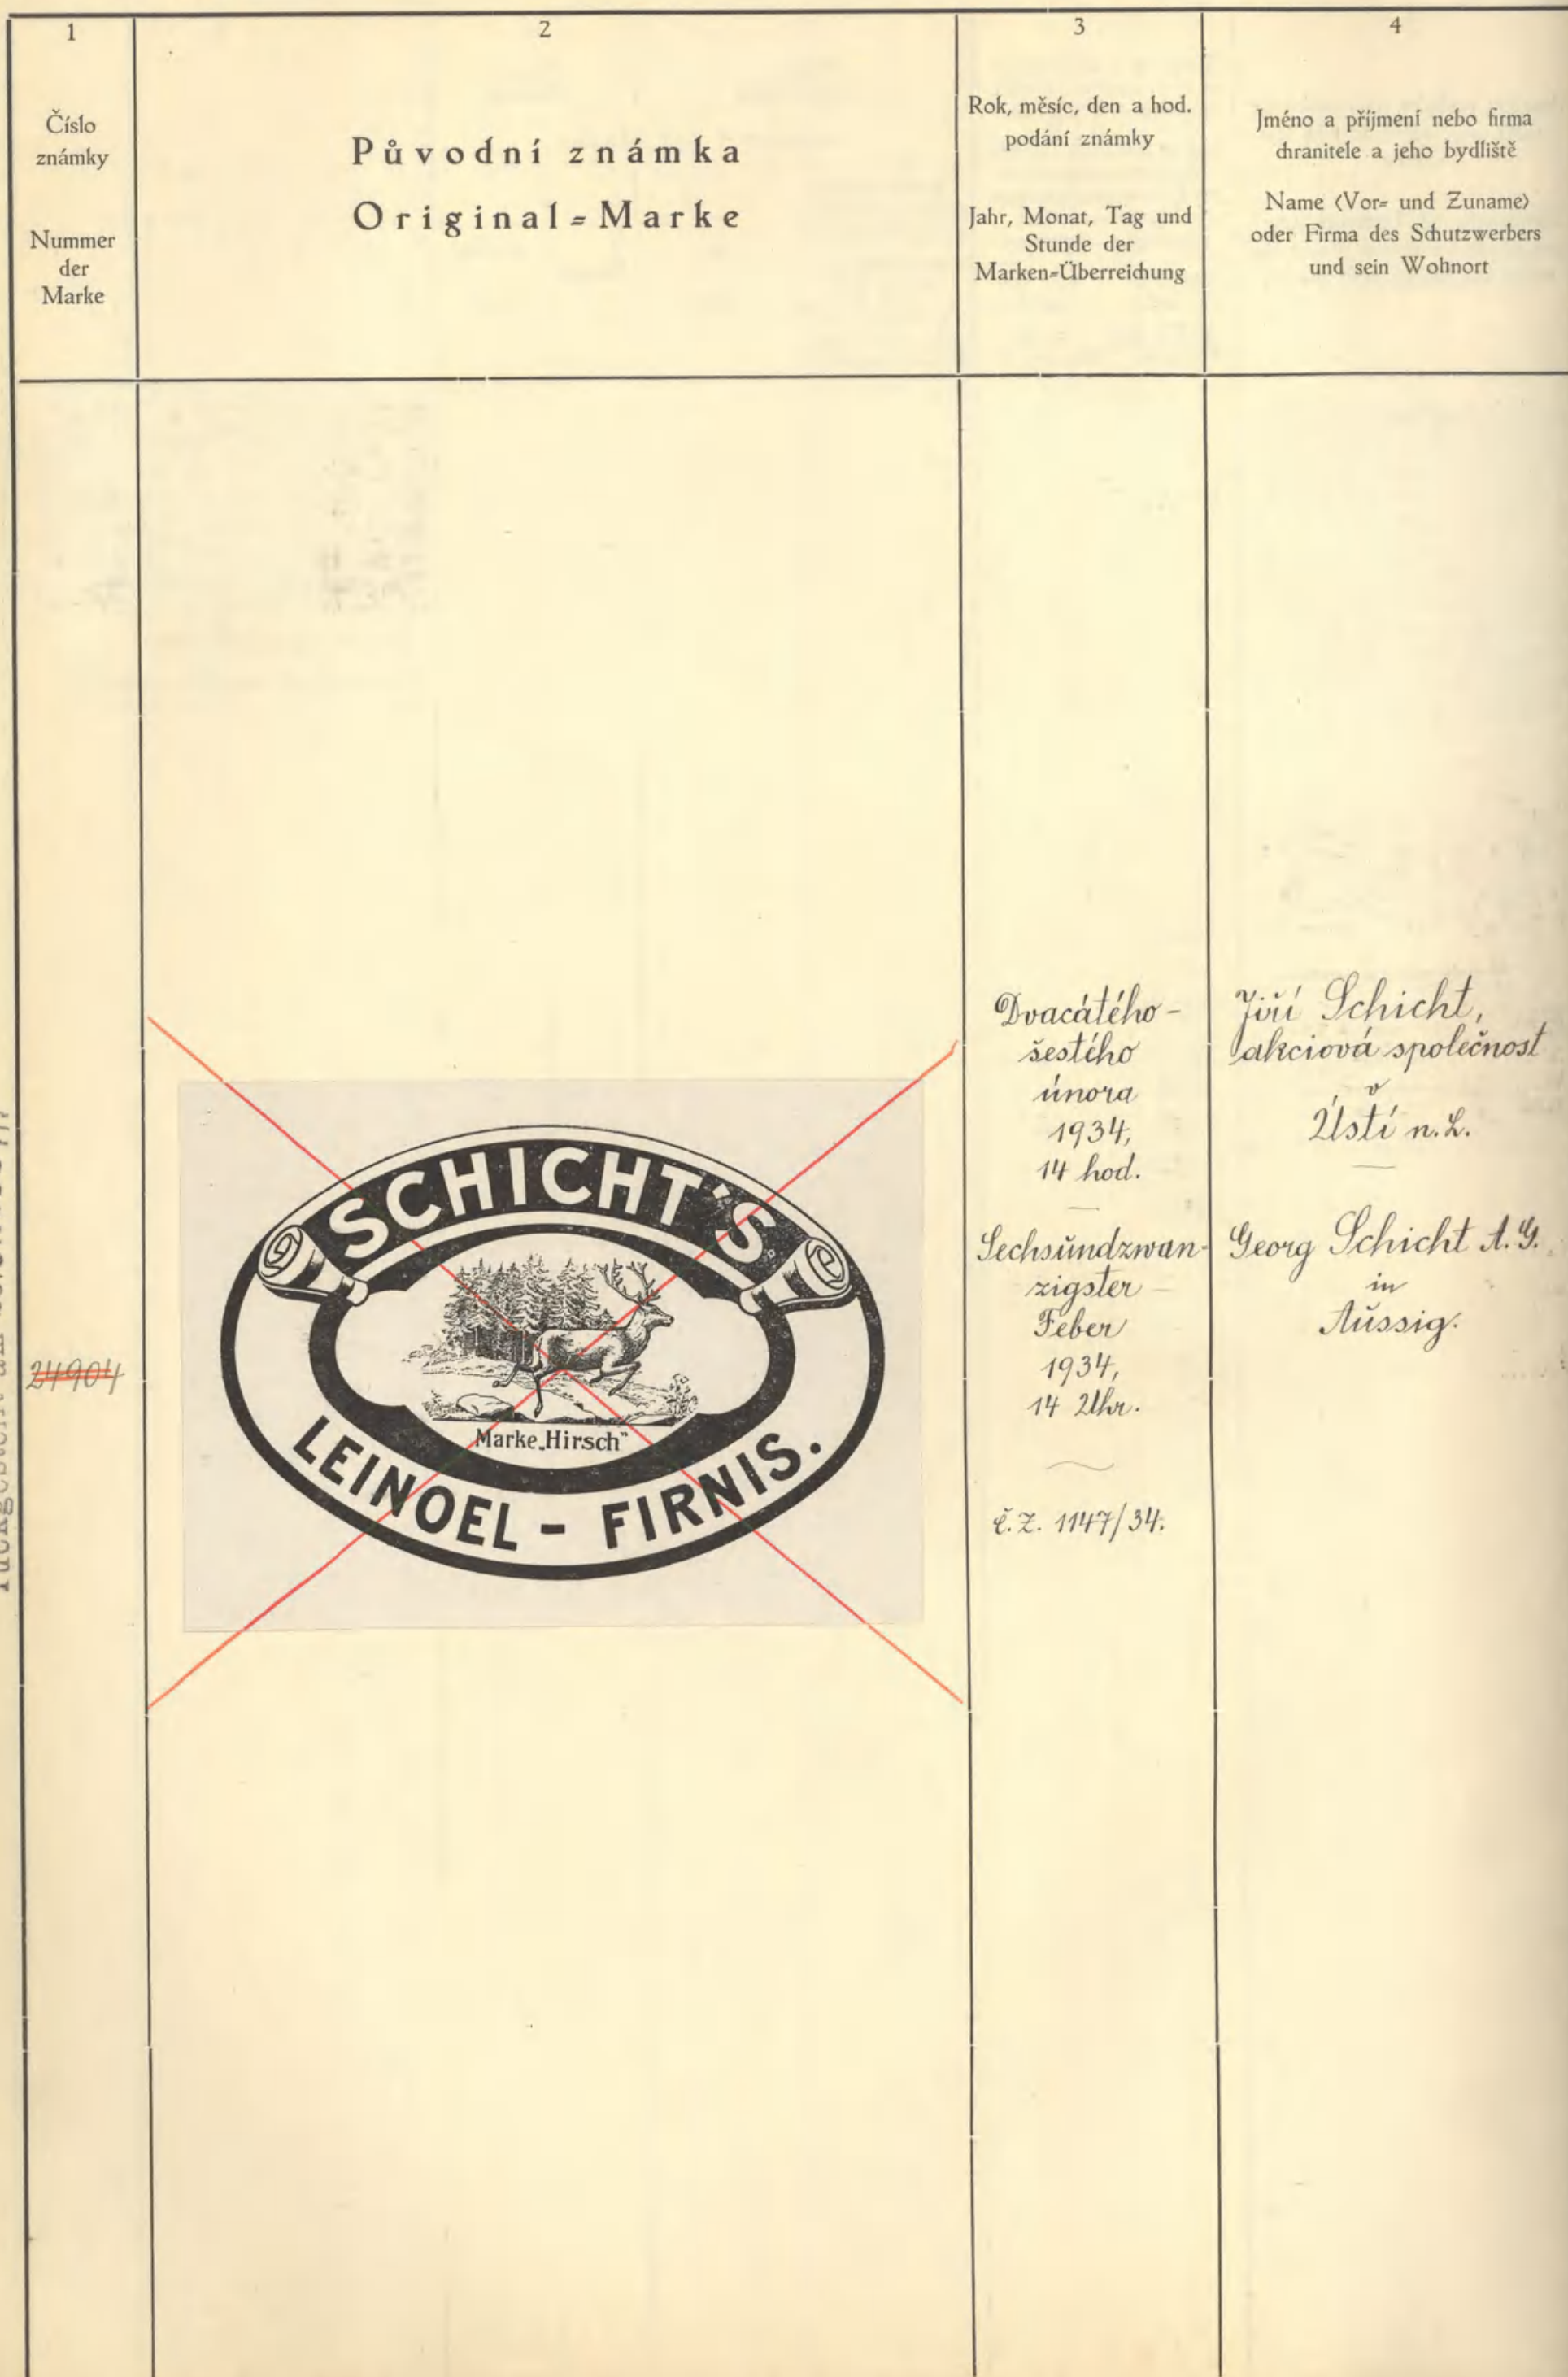 1
Číslo
známky
Nummer
der
Marke
2
Původní známka
Original=Marke
3
Rok, měsíc, den a hod.
podání známky
Jahr, Monat, Tag und
Stunde der
Marken=Überreichung
4
Jméno a příjmení nebo firma
chranitele a jeho bydliště
Name (Vor= und Zuname)
oder Firma des Schutzwerbers
und sein Wohnort
24904
SCHICHT'S
Marke „Hirsch“
LEINOEL - FIRNIS.
Dvacátého-
šestého
února
1934,
14 hod.
Sechsundzwan-
zigster
Feber
1934,
14 Uhr.
č.z. 1147/34.
Jiří Schicht,
akciová společnost
v
Ústí n.L.
Georg Schicht A.G.
in
Aussig.